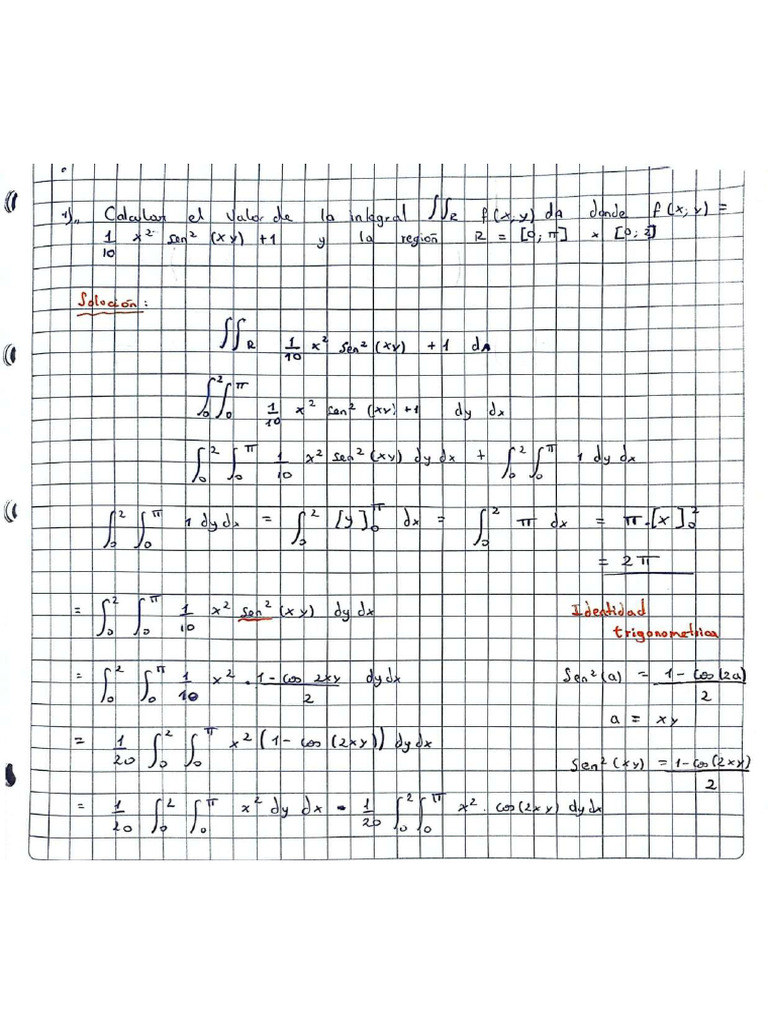 1).. Calcular el valor de la integral ∬R f(x;y) dA donde f(x;y) =
1/10 x² sen² (xy) + 1 y la región R = [0;π] × [0;2]
Solución:
∬R 1/10 x² sen² (xy) + 1 dA
∫₀² ∫₀^π 1/10 x² sen² (xy) + 1 dy dx
∫₀² ∫₀^π 1/10 x² sen² (xy) dy dx + ∫₀² ∫₀^π 1 dy dx
∫₀² ∫₀^π 1 dy dx = ∫₀² [y]₀^π dx = ∫₀² π dx = π·[x]₀²
= 2π
= ∫₀² ∫₀^π 1/10 x² sen² (xy) dy dx
Identidad
trigonometrica
= ∫₀² ∫₀^π 1/10 x² · (1 - cos 2xy)/2 dy dx
Sen²(a) = (1 - cos(2a))/2
a = xy
= 1/20 ∫₀² ∫₀^π x² (1 - cos(2xy)) dy dx
Sen² (xy) = (1 - cos(2xy))/2
= 1/20 ∫₀² ∫₀^π x² dy dx - 1/20 ∫₀² ∫₀^π x² · cos(2xy) dy dx